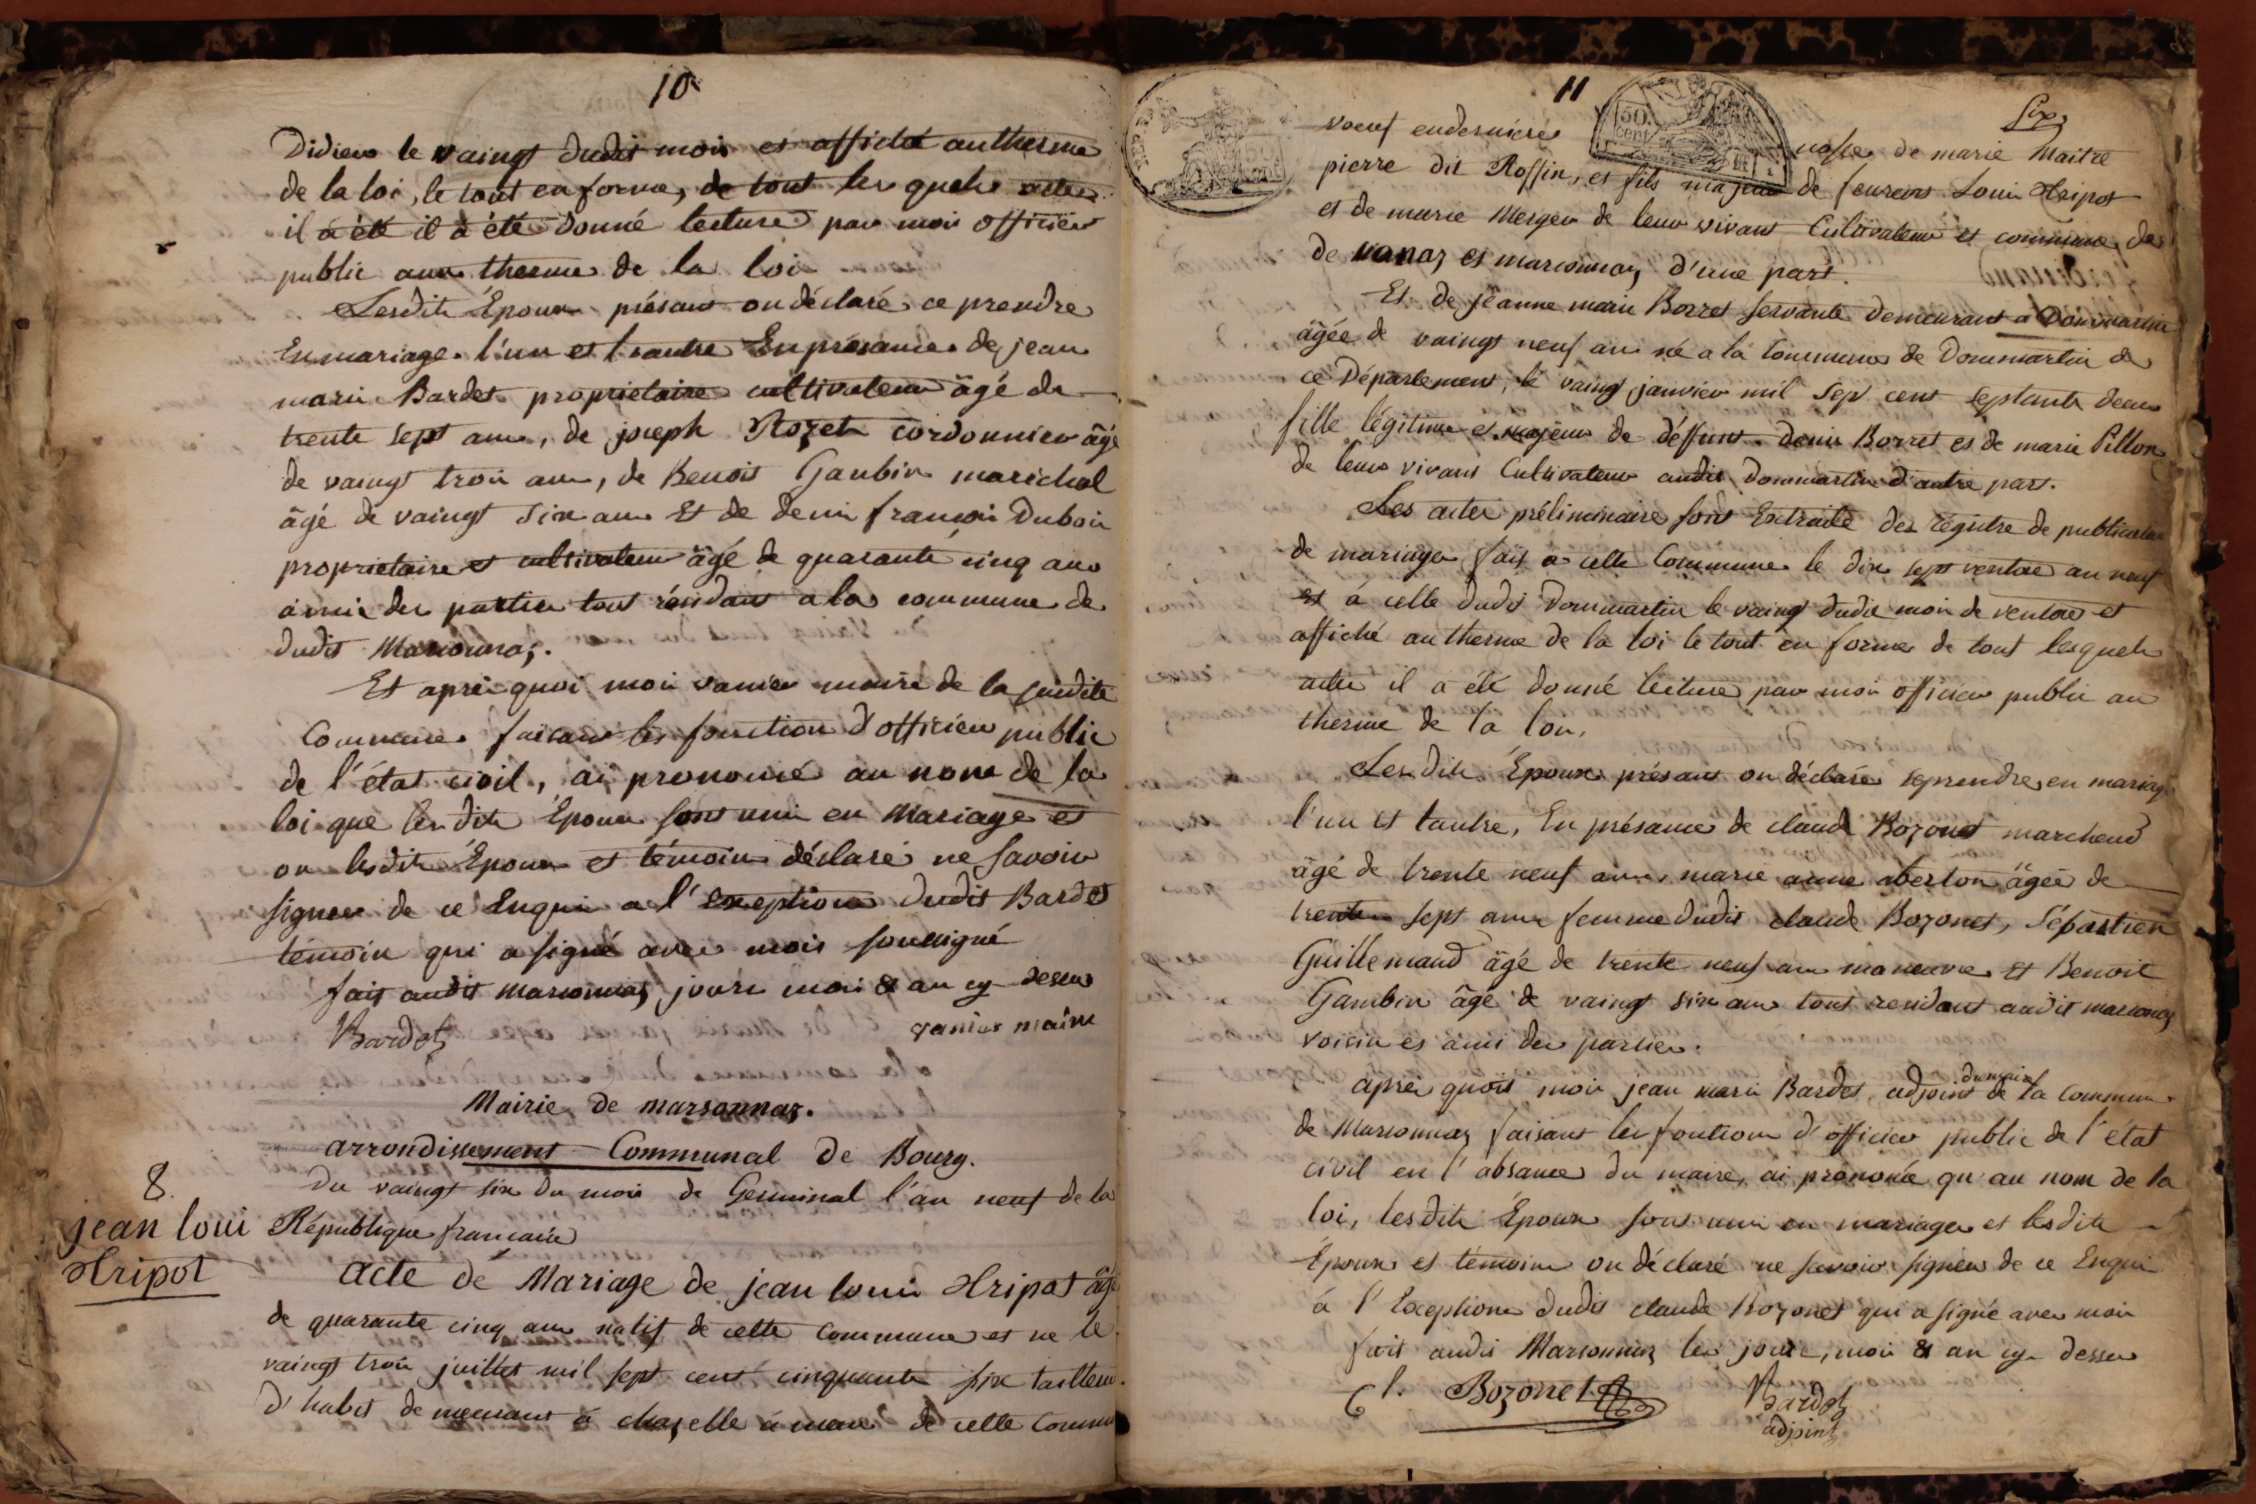 10
Didier le vaingt dudit mois et affiché au therme
de la loi, le tout en forme, de tout les quels actes
il à été il à été donné lecture par moi officier
public aux therme de la loi
Lesdits Epoux présant on déclaré ce prendre
En mariage l'un et l'autre En présance de jean
marie Bardet propriétaire cultivateur âgé de
trente sept ans, de joseph Rozet cordonnier âgé
de vaingt trois ans, de Benoit Gambin marichal
âgé de vaingt six ans Et de denis françois Dubois
propriétaire et cultivateur âgé de quarante cinq ans
amis des parties tous résidans a la commune de
dudit Marsonnaz.
Et après quoi, moi vanier maire de la susdite
Commune faisant les fonction d'officier public
de l'état civil, ai prononcé au nom de la
loi que lesdits Epoux sont unis en Mariage et
on lesdits Epoux et témoins déclaré ne savoir
signer de ce Enquis a l'exception dudit Bardet
témoin qui a signé avec mois soussigné
fait audit marsonnaz, jours mois & an cy dessus
Bardet vanier maire
Mairie de marsonnaz.
arrondissement Communal de Bourg.
8.
jean loui
tripot
Du vaingt six du mois de Germinal l'an neuf de la
République francaise
acte de Mariage de jean louis tripot âgé
de quarante cinq ans natif de cette Commune et né le
vaingt trois juillet mil sept cent cinquante six tailleur
d'habit demeurant à chazelle à mans de cette Commune
11
50 cent
Six
voeuf en dernière de marie Maitre
pierre dit Roffin, et fils majeur de feurent Loui tripot
et de marie Mergen de leur vivant Cultivateur et commune de
de vanaz et marsonnaz, d'une part.
Et de jeanne marie Borret servante demeurant à Dommartin
âgée de vaingt neuf ans né a la Commune de Dommartin de
ce Département, le vaingt janvier mil sept cent septante deux
fille légitime et majeur de déffunt denis Borret et de marie Pillon
de leur vivant Cultivateur audit Dommartin d'autre part.
Les actes préliminaire sont Extraite des régistre de publication
de mariage fait à cette Commune le dix sept ventose an neuf
et à celle dudit Dommartin le vaingt dudit mois de ventose et
affiché au therme de la loi le tout en forme de tout lesquels
actes il a été donné lecture par moi officier public au
therme de la loi,
Lesdits Epoux présans on déclaré se prendre en mariage
l'un et l'autre, En présance de claude Bozonet marchend
âgé de trente neuf ans, marie anne aberton âgée de
trente sept ans femme dudit claude Bozonet, Sébastien
Guillemaud âgé de trente neuf ans maneuvre Et Benoit
Gambin âgé de vaingt six ans tous residants audit marsonnaz
voisin et ami des parties.
après quois moi jean marie Bardet, adjoint du maire de la Commune
de Marsonnaz faisant les fontions d'officier public de l'état
civil en l'absance du maire, ai prononcé qu'au nom de la
loi, lesdits Epoux sont unis en mariage et lesdits
Epoux et témoins on déclaré ne savoir signer de ce Enquis
à l'Exception dudit claude Bozonet qui a signé avec moi
fait audit Marsonnaz les jour, mois & an cy dessus
Cl. Bozonet Bardet
adjoint